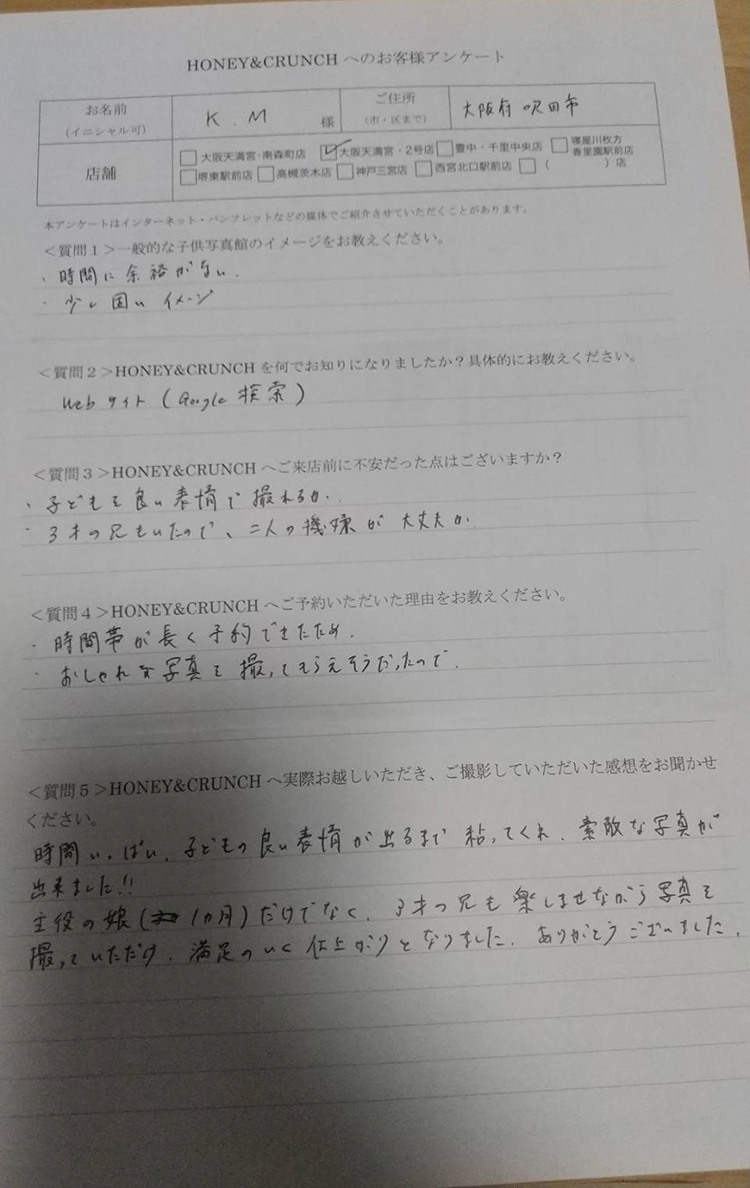 HONEY&CRUNCH へのお客様アンケート
お名前
(イニシャル可)
K.M 様
ご住所
(市・区まで)
大阪府吹田市
店舗
□大阪天満宮・南森町店 ☑大阪天満宮・2号店 □豊中・千里中央店 □寝屋川枚方香里園駅前店
□堺東駅前店 □高槻茨木店 □神戸三宮店 □西宮北口駅前店 □( )店
本アンケートはインターネット・パンフレットなどの媒体でご紹介させていただくことがあります。
<質問1>一般的な子供写真館のイメージをお教えください。
・時間に余裕がない.
・少し固いイメージ
<質問2>HONEY&CRUNCH を何でお知りになりましたか?具体的にお教えください。
Webサイト(Google 検索)
<質問3>HONEY&CRUNCH へご来店前に不安だった点はございますか?
・子どもを良い表情で撮れるか.
・3才の兄もいたので、二人の機嫌が大丈夫か.
<質問4>HONEY&CRUNCH へご予約いただいた理由をお教えください。
・時間帯が長く予約できたため.
・おしゃれな写真を撮ってもらえそうだったので.
<質問5>HONEY&CRUNCH へ実際お越しいただき、ご撮影していただいた感想をお聞かせ
ください。
時間いっぱい、子どもの良い表情が出るまで粘ってくれ、素敵な写真が
出来ました!!
主役の娘(1ヵ月)だけでなく、3才の兄も楽しませながら写真を
撮っていただけ、満足のいく仕上がりとなりました. ありがとうございました.